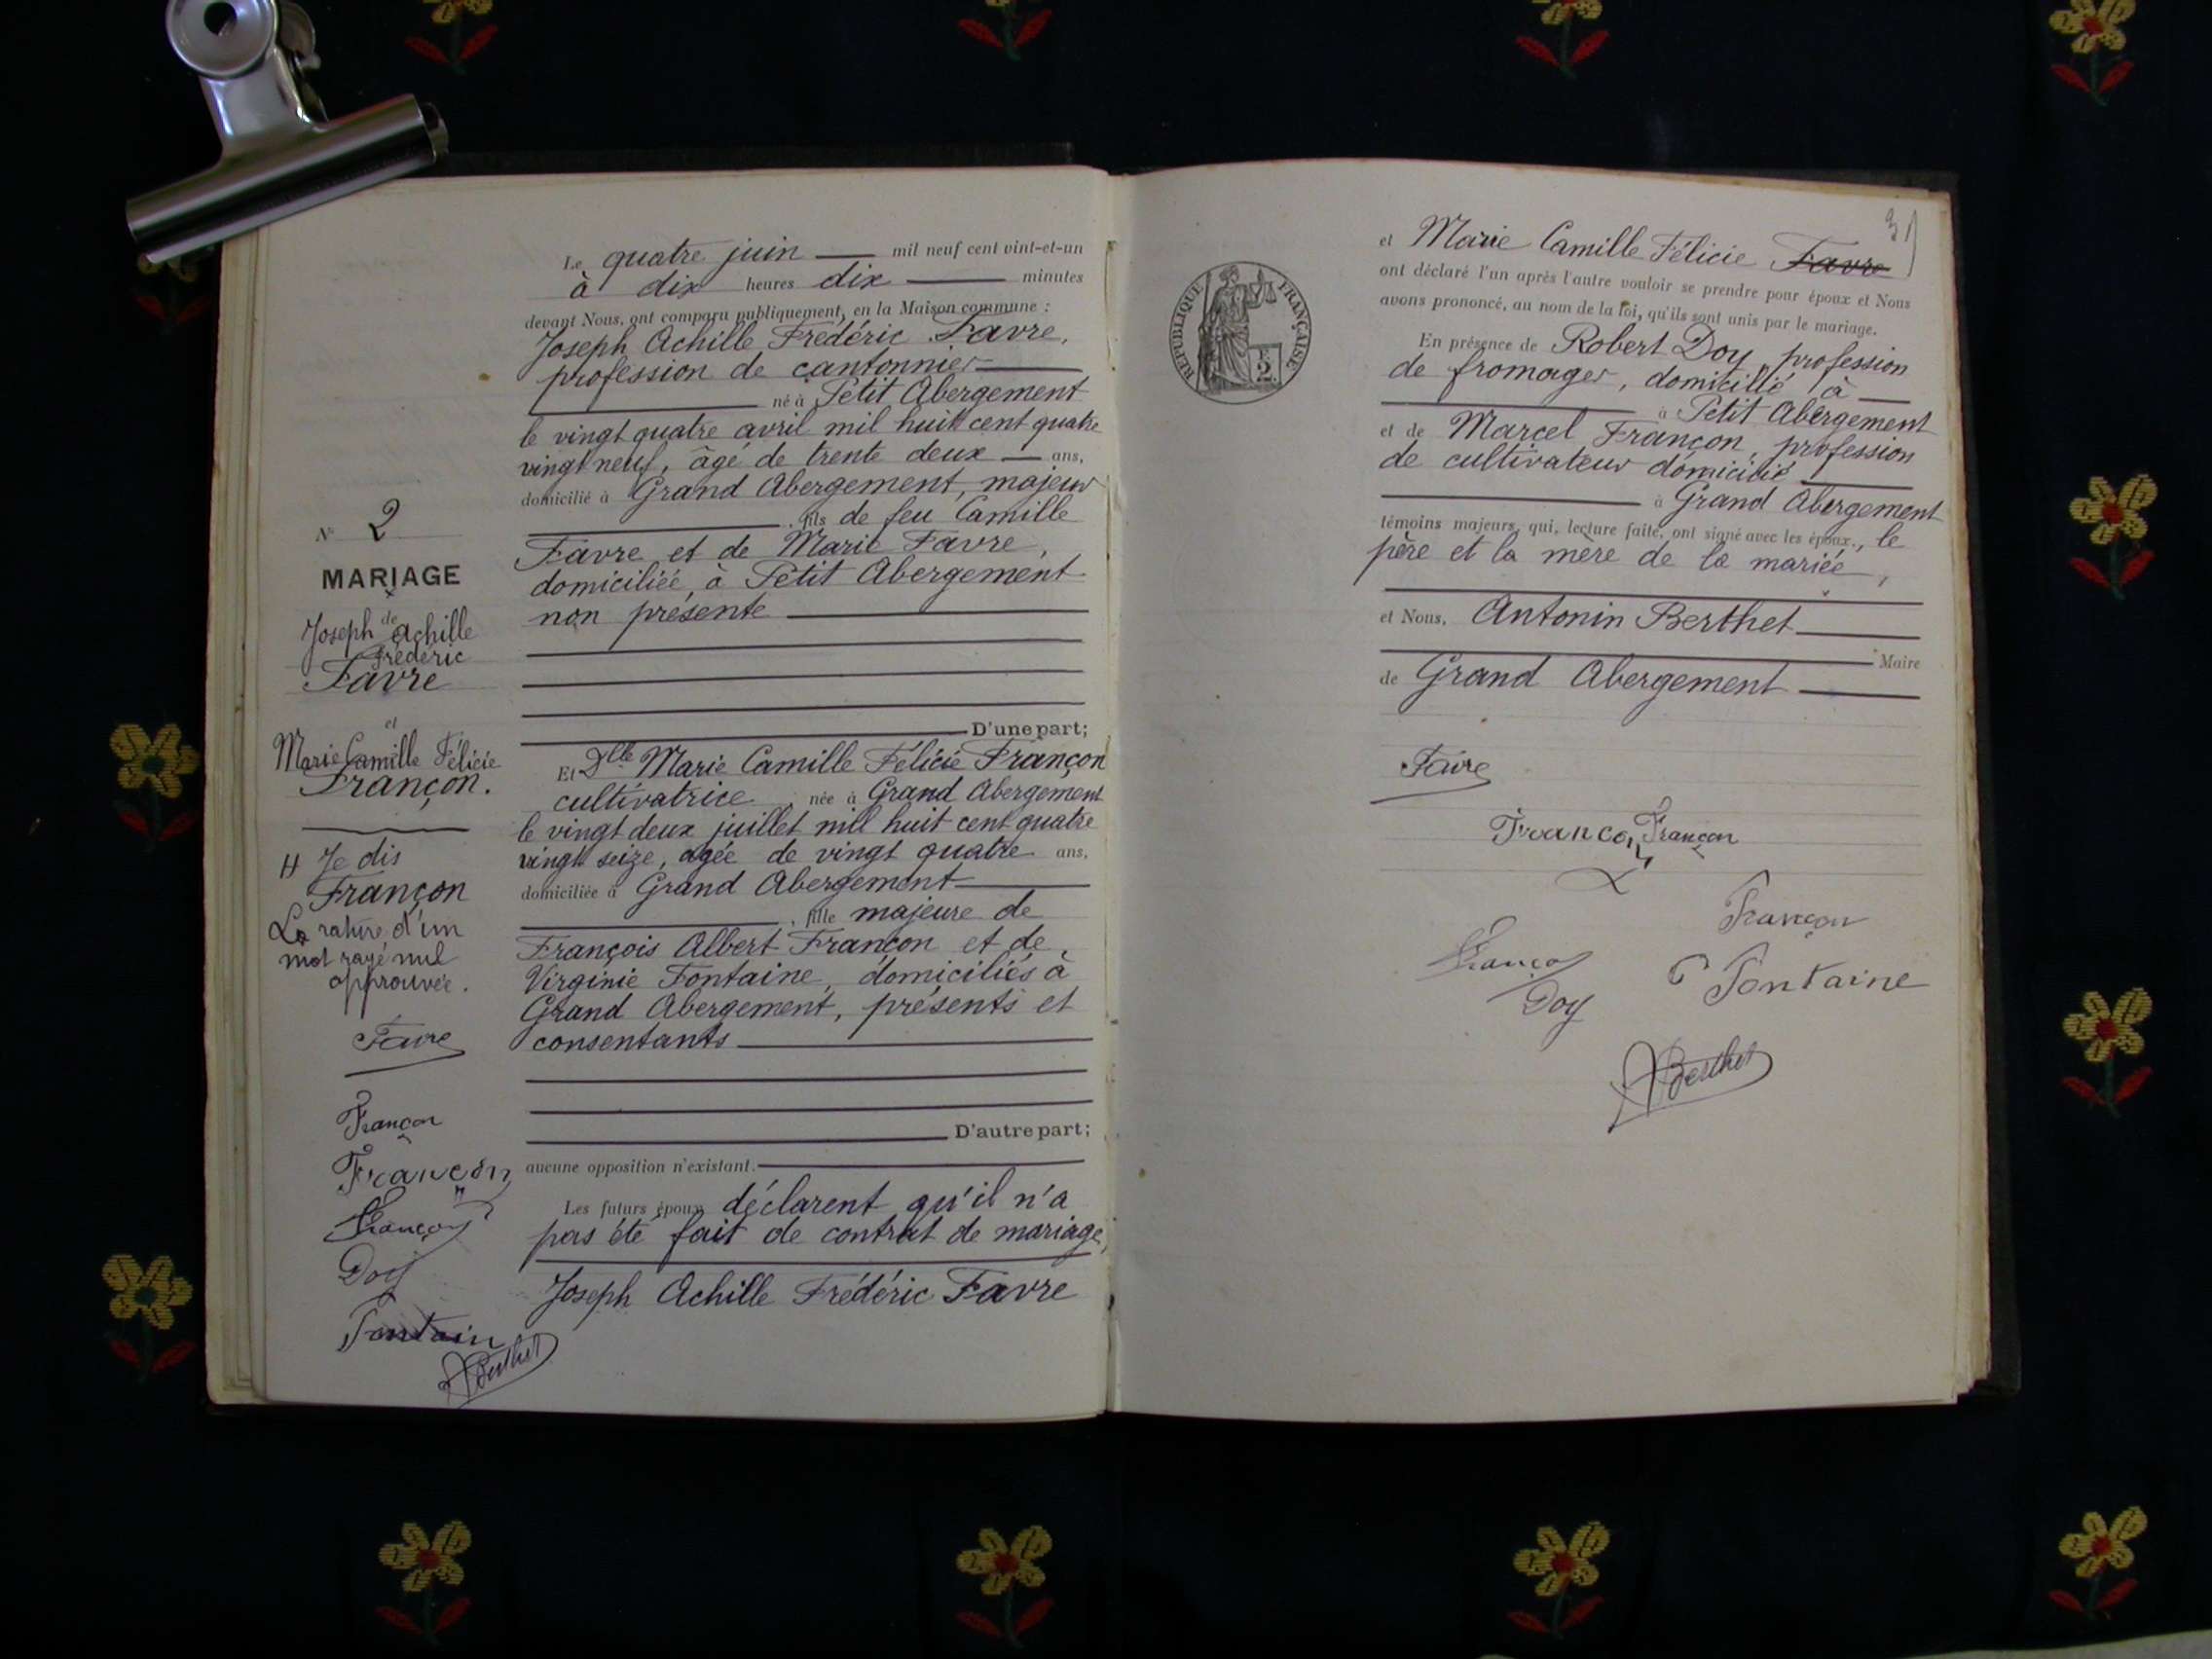 Le quatre juin mil neuf cent vint-et-un
à dix heures dix minutes
devant Nous, ont comparu publiquement, en la Maison commune :
Joseph Achille Frédéric Favre,
profession de cantonnier
né à Petit Abergement
le vingt quatre avril mil huit cent quatre
vingt neuf, âgé de trente deux ans,
domicilié à Grand Abergement, majeur
, fils de feu Camille
Favre et de Marie Favre,
domiciliée, à Petit Abergement
non présente
D'une part;
Et Dlle Marie Camille Félicie Françon
cultivatrice née à Grand Abergement
le vingt deux juillet mil huit cent quatre
vingt seize, agée de vingt quatre ans,
domiciliée à Grand Abergement
, fille majeure de
François Albert Françon et de
Virginie Fontaine, domiciliés à
Grand Abergement, présents et
consentants
D'autre part;
aucune opposition n'existant.
Les futurs époux déclarent qu'il n'a
pas été fait de contrat de mariage,
Joseph Achille Frédéric Favre
N° 2
MARIAGE
de
Joseph Achille
Frédéric
Favre
et
Marie Camille Félicie
Françon.
H Je dis
Françon
La rature d'un
mot rayé nul
approuvée.
Favre
Françon
Françon
Françon
Doy
Fontain
ABerthet
31
et Marie Camille Félicie Favre
ont déclaré l'un après l'autre vouloir se prendre pour époux et Nous
avons prononcé, au nom de la loi, qu'ils sont unis par le mariage.
En présence de Robert Doy, profession
de fromager, domicilié à
à Petit Abergement
et de Marcel Françon, profession
de cultivateur domicilié
à Grand Abergement
témoins majeurs, qui, lecture faite, ont signé avec les époux., le
père et la mère de la mariée,
et Nous, Antonin Berthet
Maire
de Grand Abergement
RÉPUBLIQUE FRANÇAISE
2
Favre
Françon Françon
Françon
Françon
Doy
Fontaine
ABerthet